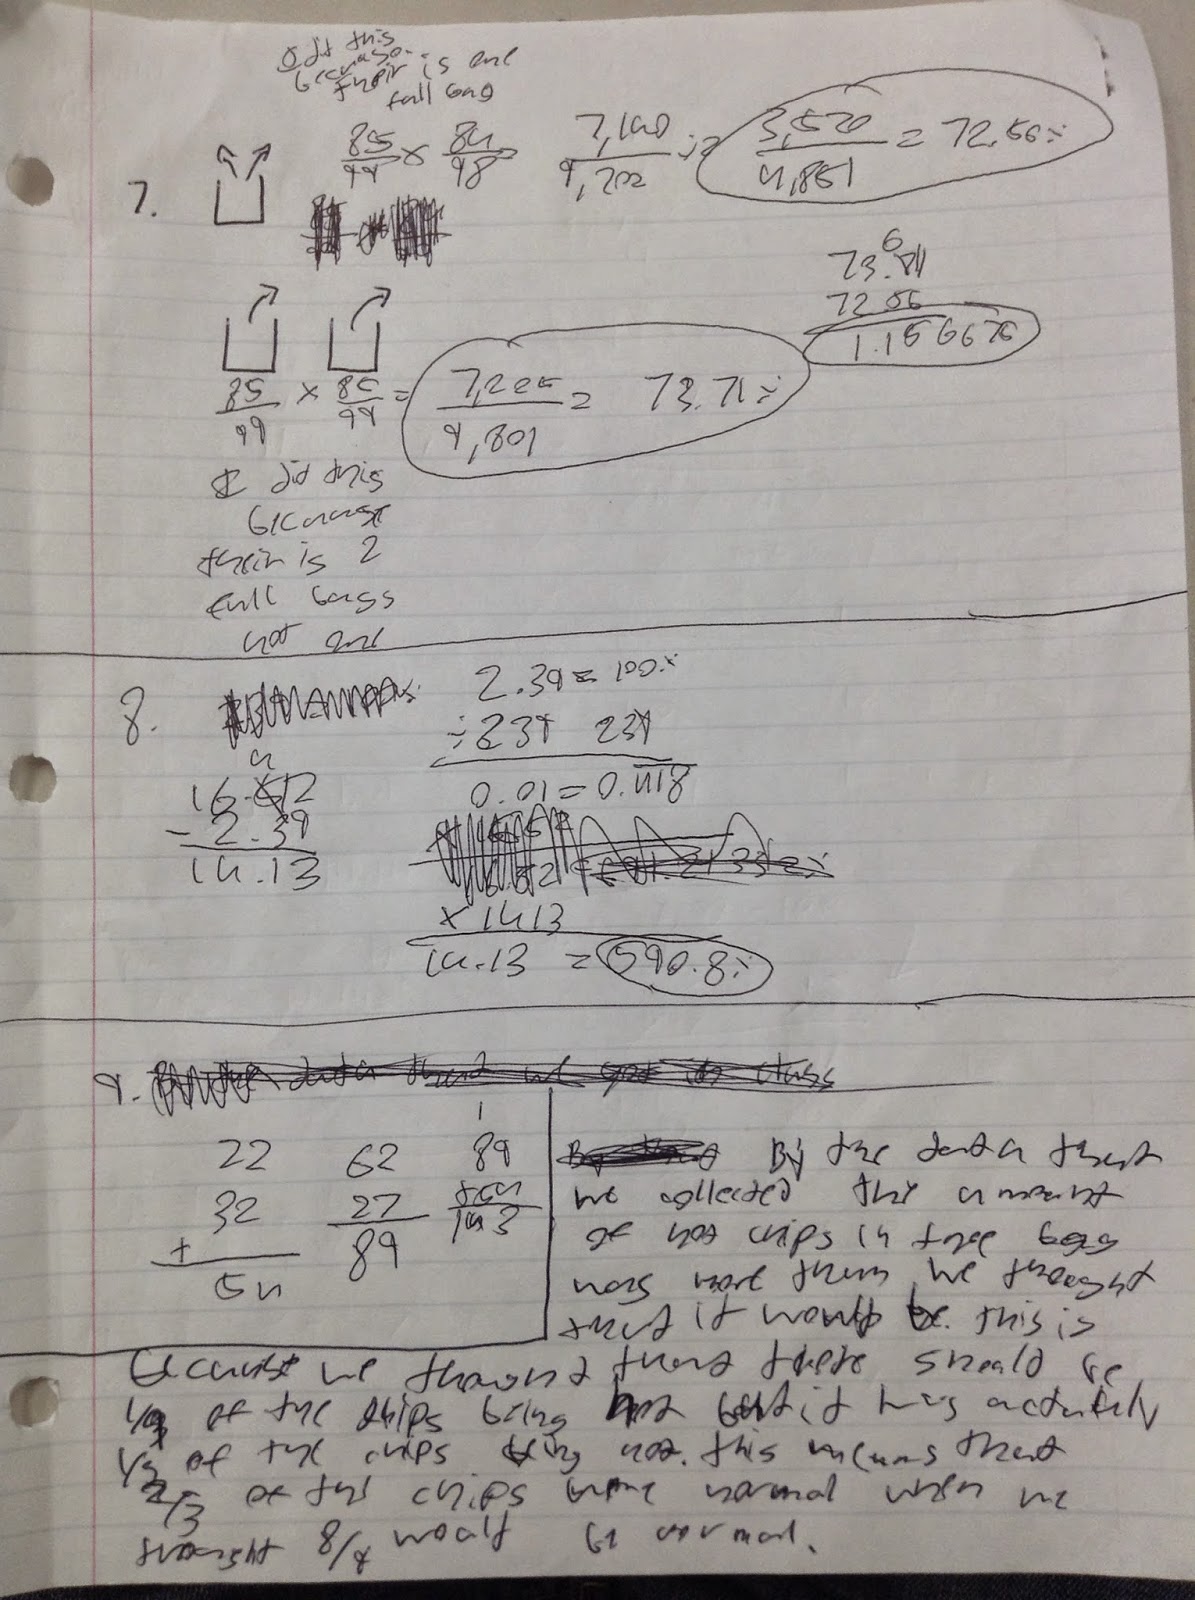 I did this
because
their is one
full bag
7.
85/99 × 84/98 = 7,140/9,702 ÷2 3,570/4,851 = 72.56%
73.71
72.56
1.156675
85/99 × 85/99 = 7,225/9,801 = 73.71%
I did this
because
their is 2
full bags
not one
8.
2.39 = 100%
÷239 239
0.01 = 0.418
16.52
- 2.39
14.13
× 1413
14.13 = 590.8%
9. data that we got in class
22 62 89
32 27 54
+
54 89 143
By the data that
we collected the amount
of hot chips in the bag
was more than we thought
that it would be. this is
because we thought that there should be
1/9 of the chips being hot but it was actually
1/3 of the chips being hot. this means that
2/3 of the chips were normal when we
thought 8/9 would be normal.